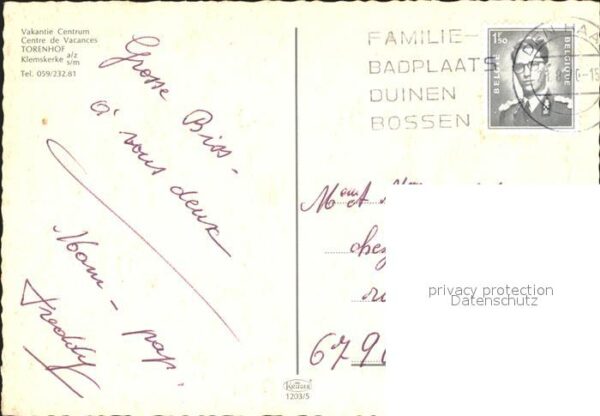 Vakantie Centrum
Centre de Vacances
TORENHOF
Klemskerke a/z s/m
Tel. 059/232.81
Grosse Bise -
à vous deux
Mami - pap.
Freddy
FAMILIE-
BADPLAATS
DUINEN
BOSSEN
DEN HAA
1F50
BELGIE
BELGIQUE
M et
chez
679
privacy protection
Datenschutz
KRÜGER
1203/5